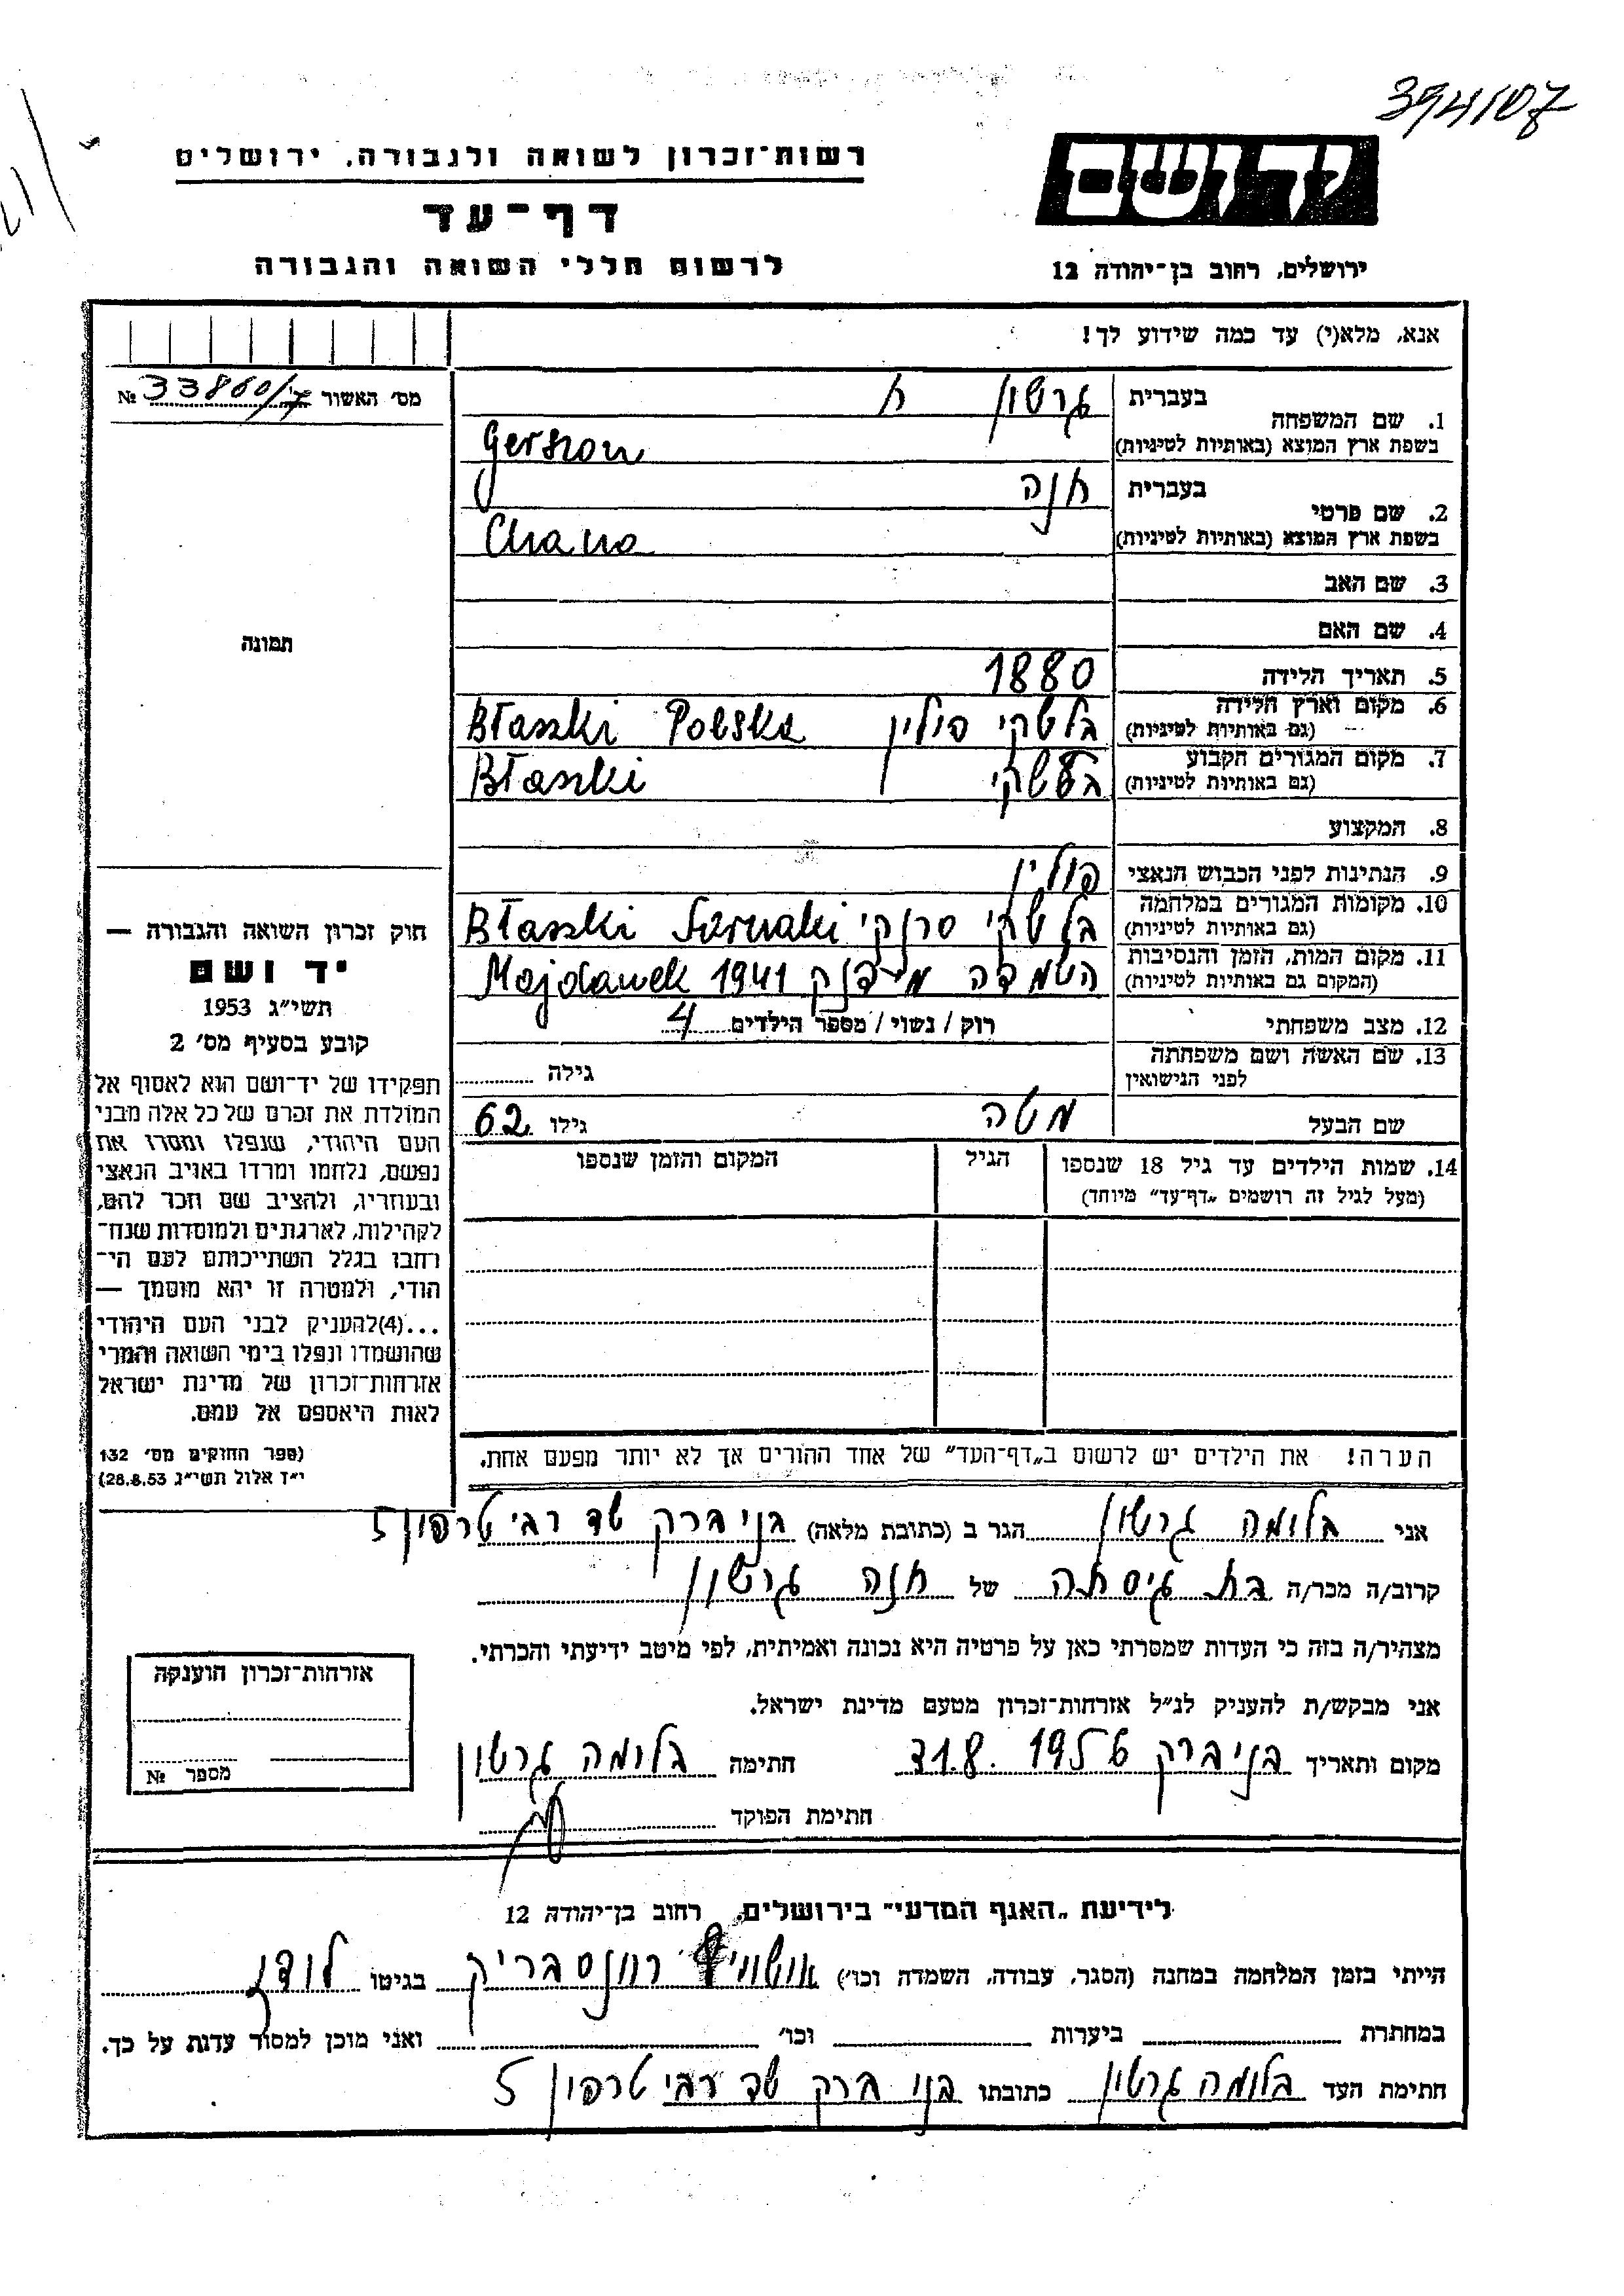 394107
רשות-זכרון לשואה ולגבורה, ירושלים
דף-עד
לרשום חללי השואה והגבורה
ידושם
ירושלים, רחוב בן-יהודה 12
אנא, מלא(י) עד כמה שידוע לך!
מס' האשור № 33860/7
תמונה
1. שם המשפחה
בעברית גרשון
בשפת ארץ המוצא (באותיות לטיניות) Gerszon
2. שם פרטי
בעברית חנה
בשפת ארץ המוצא (באותיות לטיניות) Chana
3. שם האב
4. שם האם
5. תאריך הלידה 1880
6. מקום וארץ הלידה (גם באותיות לטיניות) בלשקי פולין Błaszki Polska
7. מקום המגורים הקבוע (גם באותיות לטיניות) בלשקי Błaszki
8. המקצוע
9. הנתינות לפני הכבוש הנאצי פולין
10. מקומות המגורים במלחמה (גם באותיות לטיניות) בלשקי סרנקי Błaszki Sarnaki
11. מקום המות, הזמן והנסיבות (המקום גם באותיות לטיניות) השמדה מידנק 1941 Majdanek
12. מצב משפחתי רוק / נשוי / מספר הילדים 4
13. שם האשה ושם משפחתה לפני הנישואין גילה
שם הבעל משה גילו 62
14. שמות הילדים עד גיל 18 שנספו
(מעל לגיל זה רושמים „דף-עד” מיוחד)
הגיל
המקום והזמן שנספו
הערה! את הילדים יש לרשום ב„דף-העד” של אחד ההורים אך לא יותר מפעם אחת.
חוק זכרון השואה והגבורה —
יד ושם
תשי״ג 1953
קובע בסעיף מס' 2
תפקידו של יד-ושם הוא לאסוף אל
המולדת את זכרם של כל אלה מבני
העם היהודי, שנפלו ומסרו את
נפשם, נלחמו ומרדו באויב הנאצי
ובעוזריו, ולהציב שם וזכר להם,
לקהילות, לארגונים ולמוסדות שנח-
רחבו בגלל השתייכותם לעם הי-
הודי, ולמטרה זו יהא מוסמך —
...(4)להעניק לבני העם היהודי
שהושמדו ונפלו בימי השואה והמרי
אזרחות-זכרון של מדינת ישראל
לאות היאספם אל עמם.
(ספר החוקים מס' 132
י״ז אלול תשי״ג 28.8.53)
אני בלומה גרשון הגר ב (כתובת מלאה) בני ברק שד רבי טרפון 5
קרוב/ה מכר/ה בת גיסתה של חנה גרשון
מצהיר/ה בזה כי העדות שמסרתי כאן על פרטיה היא נכונה ואמיתית, לפי מיטב ידיעתי והכרתי.
אני מבקש/ת להעניק לנ״ל אזרחות-זכרון מטעם מדינת ישראל.
מקום ותאריך בני ברק 31.8.1956 חתימה בלומה גרשון
חתימת הפוקד
אזרחות-זכרון הוענקה
מספר №
לידיעת „האגף המדעי” בירושלים, רחוב בן-יהודה 12
הייתי בזמן המלחמה במחנה (הסגר, עבודה, השמדה וכו') אושוויץ רוונסבריק בגיטו לודז
במחתרת ביערות וכו' ואני מוכן למסור עדות על כך.
חתימת העד בלומה גרשון כתובתו בני ברק שד רבי טרפון 5